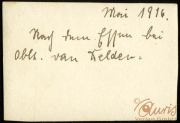 Mai 1916.
Nach dem Essen bei
Oblt. van Delden.